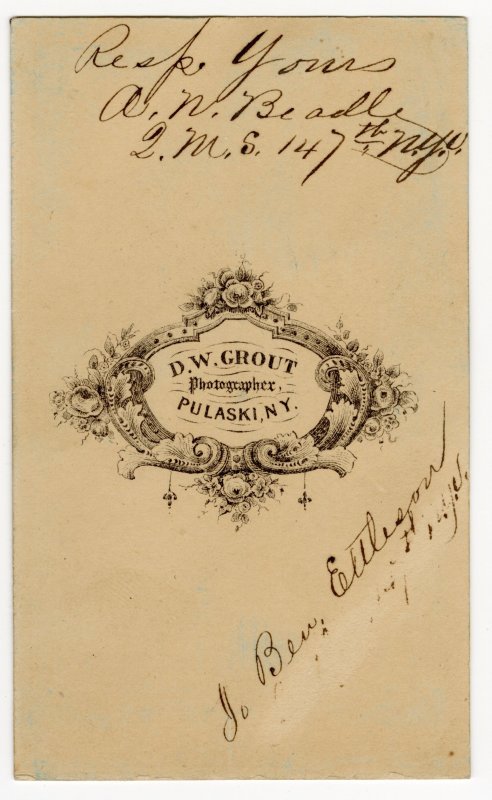 Resp. Yours
A. N. Beadle
Q.M.S. 147th N.Y.V.
D.W. GROUT
Photographer,
PULASKI, N.Y.
To Ben. Ettleson